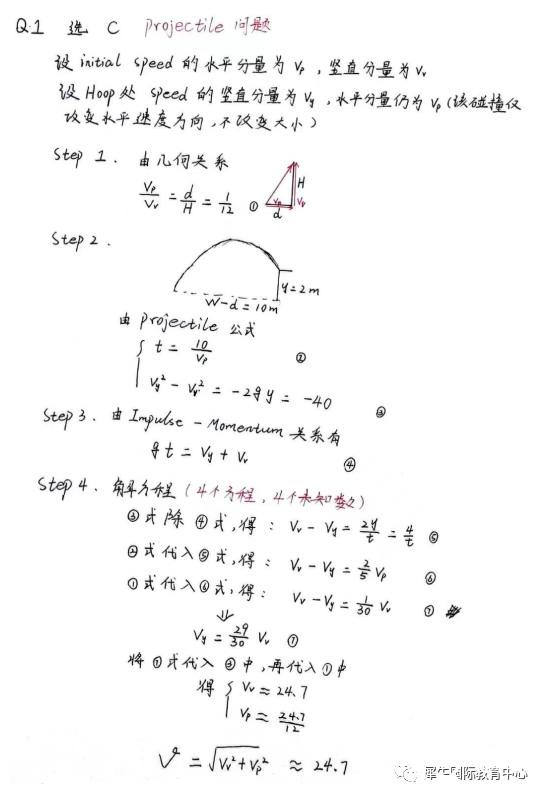 Q.1 选 C projectile 问题
设 initial speed 的水平分量为 Vp，竖直分量为 Vv
设 Hoop 处 speed 的竖直分量为 Vy，水平分量仍为 Vp（该碰撞仅
改变水平速度方向，不改变大小）
Step 1. 由几何关系
Vp/Vv = d/H = 1/12 ①
H
Vp
Vp
d
Step 2.
y=2m
W-d=10m
由 projectile 公式
t = 10/Vp ②
Vy² - Vv² = -2gy = -40 ③
Step 3. 由 Impulse - Momentum 关系有
gt = Vy + Vv ④
Step 4. 解方程（4个方程，4个未知数）
③式除④式，得： Vv - Vy = 2y/t = 4/t ⑤
②式代入⑤式，得： Vv - Vy = 2/5 Vp ⑥
①式代入⑥式，得： Vv - Vy = 1/30 Vv ⑦
⇓
Vy = 29/30 Vv ⑦
将⑦式代入③中，再代入①中
得 { Vv ≈ 24.7
Vp ≈ 24.7/12
V = √(Vv²+Vp²) ≈ 24.7
犀牛国际教育中心